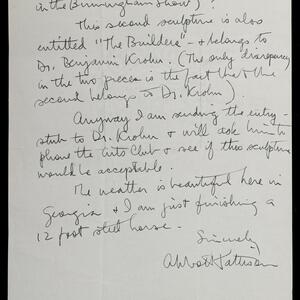 in the Birmingham Show)?
This second sculpture is also
entitled "The Builders" - & belongs to
Dr. Benjamin Krohn. (The only discrepancy
in the two pieces is the fact that the
second belongs to Dr. Krohn)
Anyway I am sending the entry-
stub to Dr. Krohn & will ask him to
phone the Arts Club & see if this sculpture
would be acceptable.
The weather is beautiful here in
Georgia & I am just finishing a
12 foot steel horse.
Sincerely
Abbott Pattison